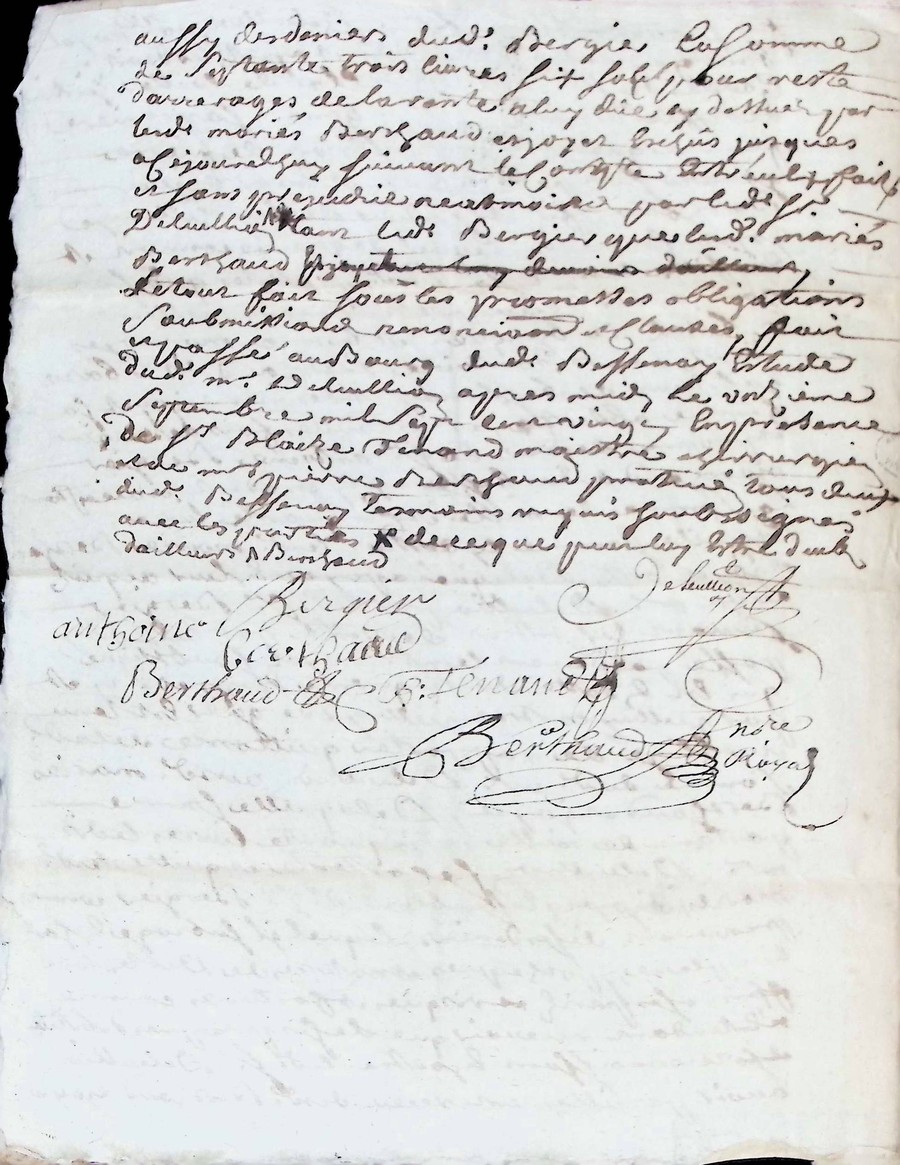 aussy des deniers dud. Bergier la somme
de septante trois livres six sols pour reste
d'arrerages de la rente a luy düe cy dessus par
lesd. mariés Berthaud et joyet escheüs jusques
a cejourdhuy suivant le Compte entre eux fait
et sans prejudice neatmoins par led. sr
Deleullion tant led. Bergier que lesd. mariés
Berthaud
le tout fait sous les promesses obligations
soubmissions renonciaons et Clauses, fait
et passé au Bourg dud. Bessenay Estude
dud. mr. Deleullion apres midy le onzieme
septembre mil sept cent vingt En présence
de sr. Blaize Tenand maistre chirurgien
et de mre pierre Berthaud praticien tous deux
dud. Bessenay tesmoins requis soubsignés
avec les parties × de ce que pour luy Estre dub
d'ailleurs Berthaud
Bergier Deleullion
anthoine Berthaud
Berthaud B: Tenand
Berthaud nore
Royal